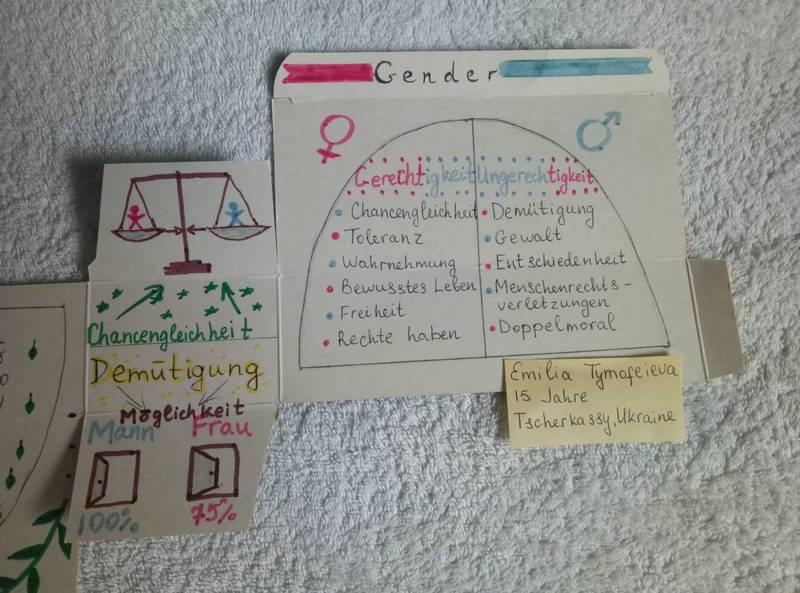 Gender
Gerechtigkeit Ungerechtigkeit
Chancengleichheit
Toleranz
Wahrnehmung
Bewusstes Leben
Freiheit
Rechte haben
Demütigung
Gewalt
Entschiedenheit
Menschenrechts-
verletzungen
Doppelmoral
Chancengleichheit
Demütigung
Möglichkeit
Mann Frau
100% 75%
Emilia Tymofeieva
15 Jahre
Tscherkassy, Ukraine